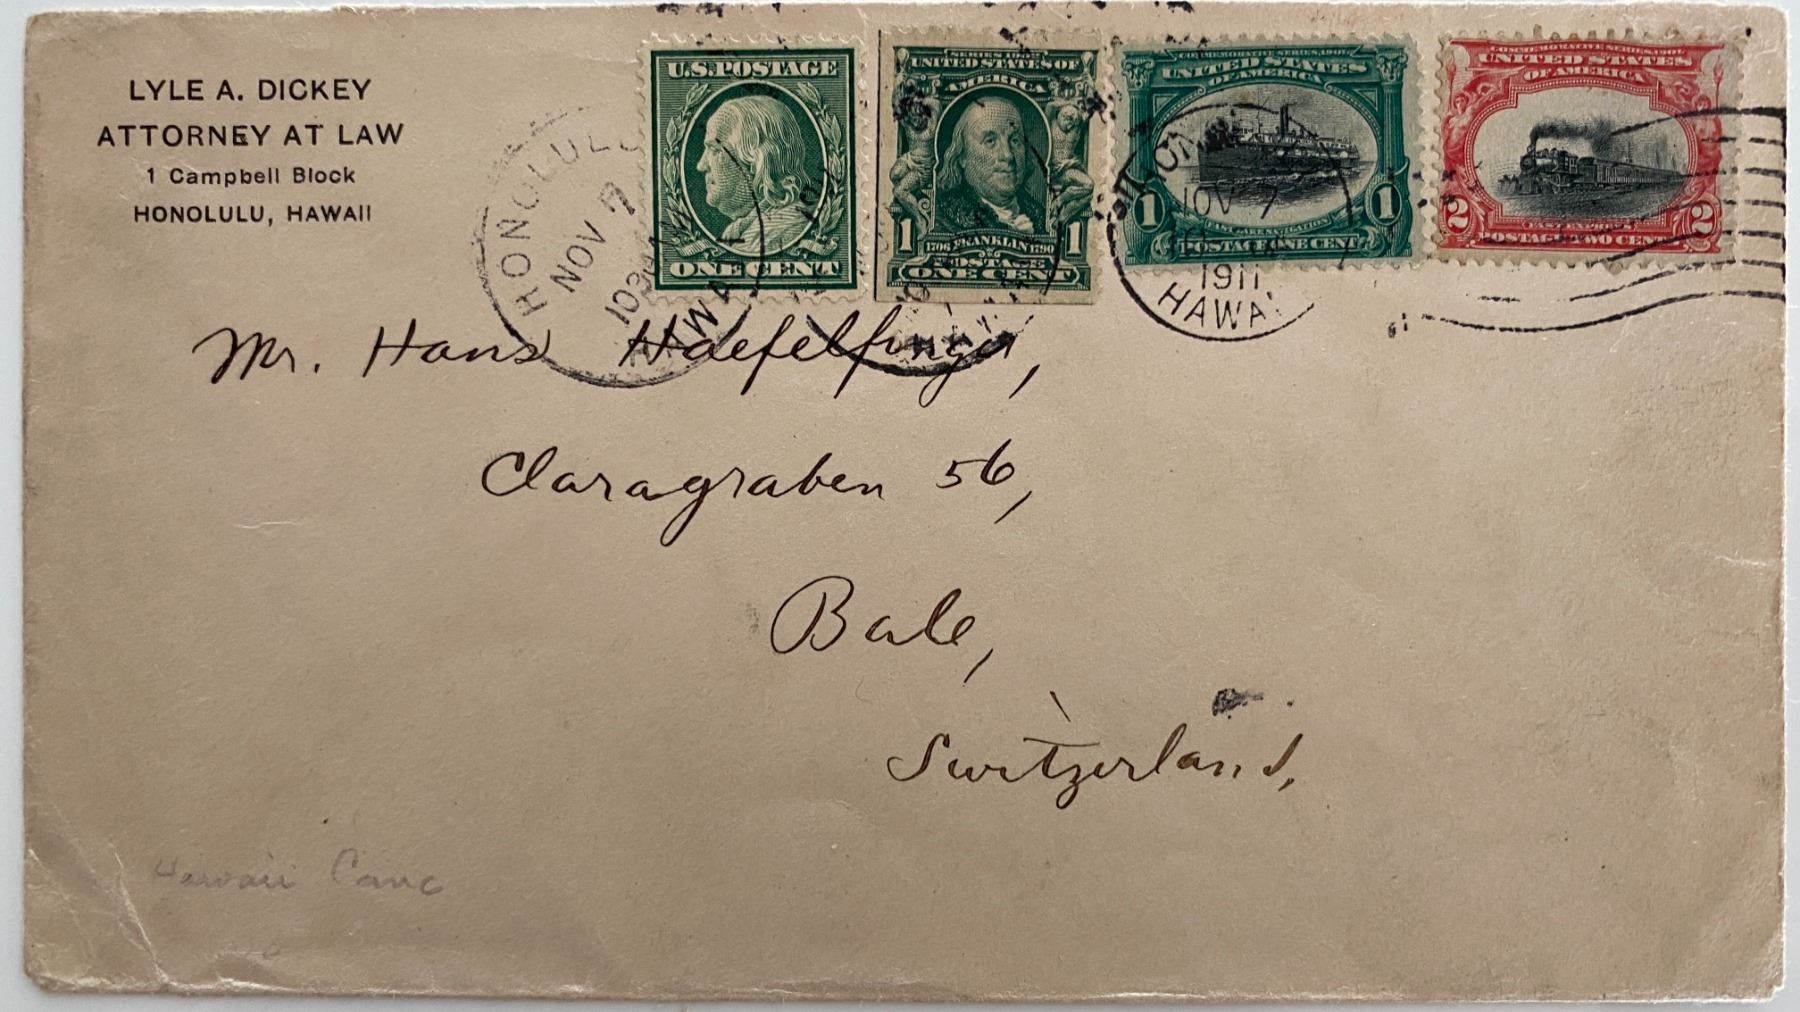 LYLE A. DICKEY
ATTORNEY AT LAW
1 Campbell Block
HONOLULU, HAWAII
U.S. POSTAGE
ONE CENT
UNITED STATES OF
AMERICA
1 1706 FRANKLIN 1790 1
POSTAGE
ONE CENT
COMMEMORATIVE SERIES, 1901
UNITED STATES
OF AMERICA
1 1
POSTAGE ONE CENT
COMMEMORATIVE SERIES, 1901
UNITED STATES
OF AMERICA
2 2
POSTAGE TWO CENTS
HONOLULU
NOV 7
1030 AM
HAWAII
NOV 7
1911
HAWAI
Mr. Hans Haefelfinger,
Claragraben 56,
Bale,
Switzerland.
Hawaii Canc